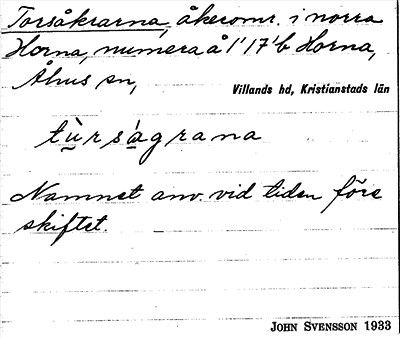 Torsåkrarna, åkeromr. i norra
Horna, numera å 1¹17¹b Horna,
Åhus sn,
Villands hd, Kristianstads län
tùrságrana
Namnet anv. vid tiden före
skiftet.
JOHN SVENSSON 1933